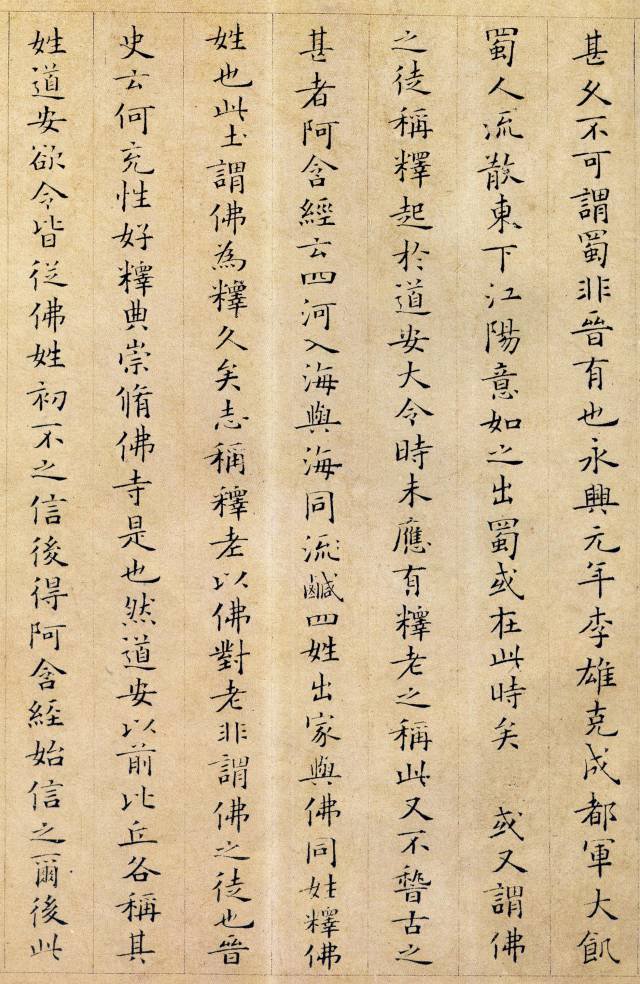 甚久不可謂蜀非晉有也永興元年李雄克成都軍大飢
蜀人流散東下江陽意如之出蜀或在此時矣　或又謂佛
之徒稱釋起於道安大令時未應有釋老之稱此又不稽古之
甚者阿含經云四河入海與海同流鹹四姓出家與佛同姓釋佛
姓也此土謂佛為釋久矣志稱釋老以佛對老非謂佛之徒也晉
史云何充性好釋典崇脩佛寺是也然道安以前比丘各稱其
姓道安欲令皆從佛姓初不之信後得阿含經始信之爾後此